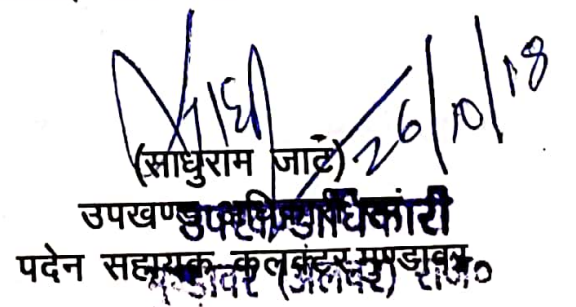 26/10/18
(साधुराम जाट)
उपखण्ड अधिकारी एवं
उपखण्ड अधिकारी
पदेन सहायक कलक्टर मुण्डावर
मुण्डावर (अलवर) राज०